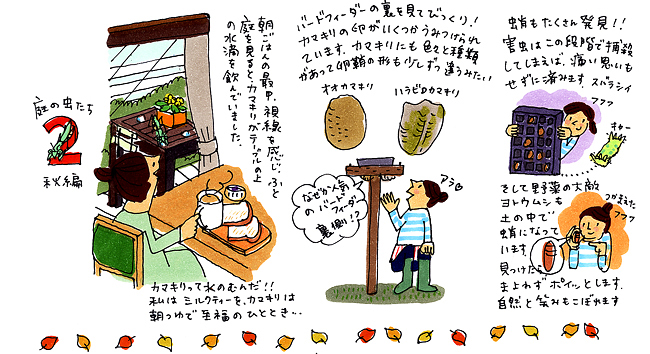 庭の虫たち
2
秋編
朝ごはんの最中、視線を感じ、ふと
庭を見ると、カマキリがテーブルの上
の水滴を飲んでいました。
カマキリって水のむんだ!!
私はミルクティーを、カマキリは
朝つゆで至福のひととき…
バードフィーダーの裏を見てびっくり!
カマキリの卵がいくつかうみつけられ
ています。カマキリにも色々と種類
があって卵鞘の形も少しずつ違うみたい
オオカマキリ
ハラビロカマキリ
なぜか人気
のバード
フィーダー
裏側!?
アラ
蛹もたくさん発見!!
害虫はこの段階で捕殺
してしまえば、痛い思いも
せずに済みます スバラシイ
フフフ
キャー
そして野菜の大敵
ヨトウムシも
土の中で
蛹になって
います
見つけたら
まよわず ポイッとします。
自然と笑みもこぼれます
つかまえた
フフフ